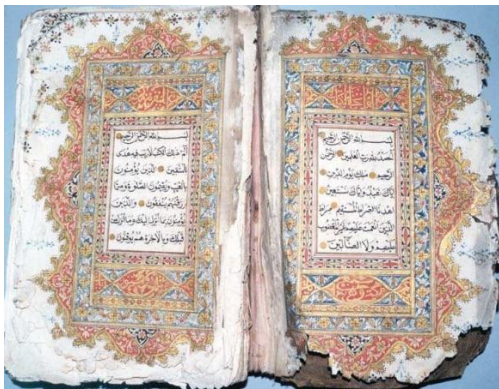 بسم الله الرحمن الرحيم
الحمد لله رب العلمين الرحمن
الرحيم ملك يوم الدين
اياك نعبد واياك نستعين
اهدنا الصراط المستقيم صراط
الذين انعمت عليهم غير المغضوب
عليهم ولا الضالين
بسم الله الرحمن الرحيم
الم ذلك الكتب لا ريب فيه هدى
للمتقين الذين يؤمنون
بالغيب ويقيمون الصلوة ومما
رزقنهم ينفقون والذين
يؤمنون بما انزل اليك وما انزل من
قبلك وبالاخرة هم يوقنون